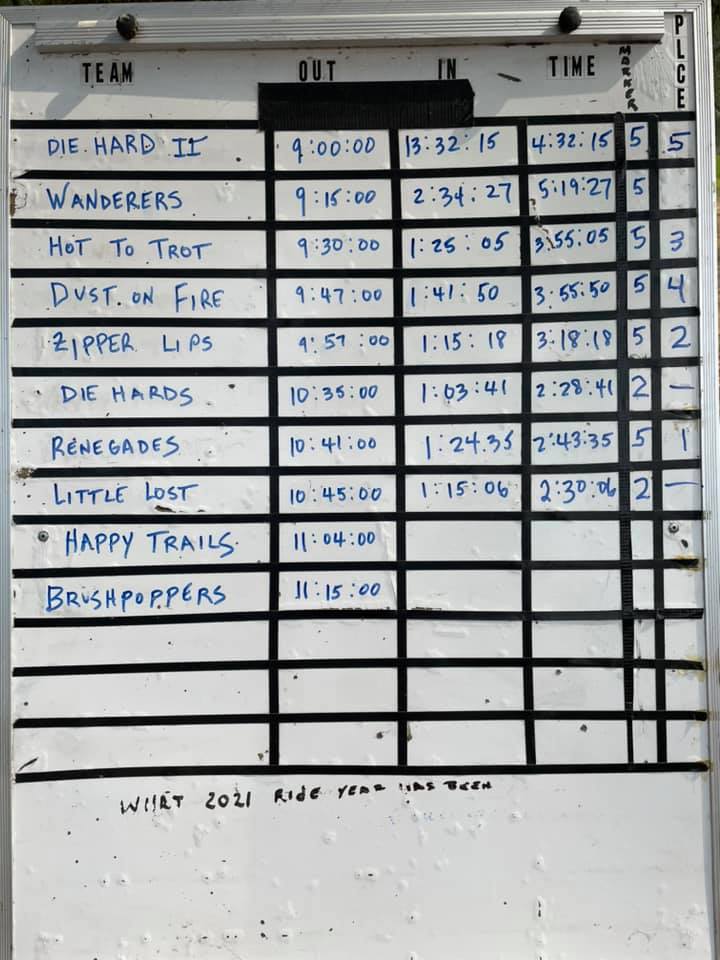 TEAM OUT IN TIME MARKER PLCE
DIE HARD II 9:00:00 13:32:15 4:32:15 5 5
WANDERERS 9:15:00 2:34:27 5:19:27 5
HOT TO TROT 9:30:00 1:25:05 3:55:05 5 3
DUST. ON FIRE 9:47:00 1:41:50 3:55:50 5 4
ZIPPER LIPS 9:57:00 1:15:18 3:18:18 5 2
DIE HARDS 10:35:00 1:03:41 2:28:41 2 —
RENEGADES 10:41:00 1:24.35 2:43:35 5 1
LITTLE LOST 10:45:00 1:15:06 2:30:06 2 —
HAPPY TRAILS 11:04:00
BRUSHPOPPERS 11:15:00
WHAT 2021 RIDE YEAR HAS BEEN